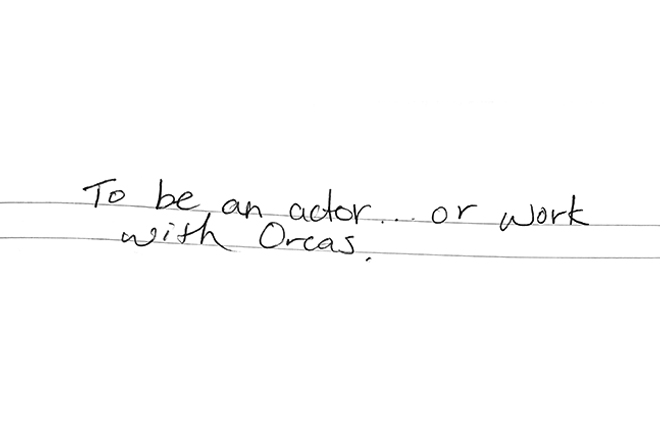 To be an actor... or work
with Orcas.